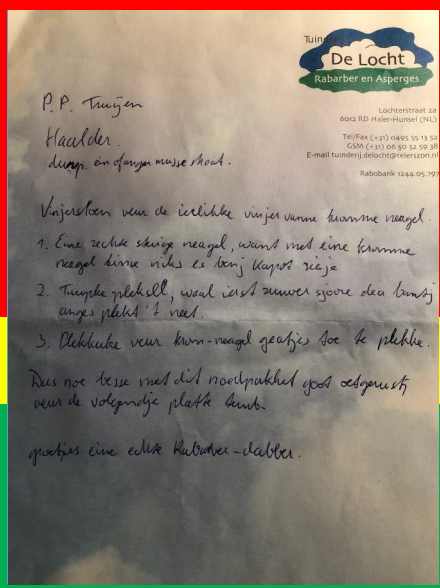 Tuinderij
De Locht
Rabarber en Asperges
Lochterstraat 2a
6012 RD Haler-Hunsel (NL)
Tel/Fax (+31) 0495 55 13 52
GSM (+31) 06 50 52 59 38
E-mail tuinderij.delocht@telerszon.nl
Rabobank 1244.05.797
P.P. Truijen
Haalder.
veur de vinjer vanne kromme neagel.
1. Eine rechte stevige neagel, want met eine kromme
neagel kinse niks es banj kapot
2. Tuupke pleksell, waal ierst zuuver de banj
anges plekt 't neet.
3. Plekkuke veur krom-neagel geatjes toe te plekke.
Dus noe besse met dit noodpakket good oetgerust
veur de volgendje platte
groetjes eine echte Rabarber-dabber.